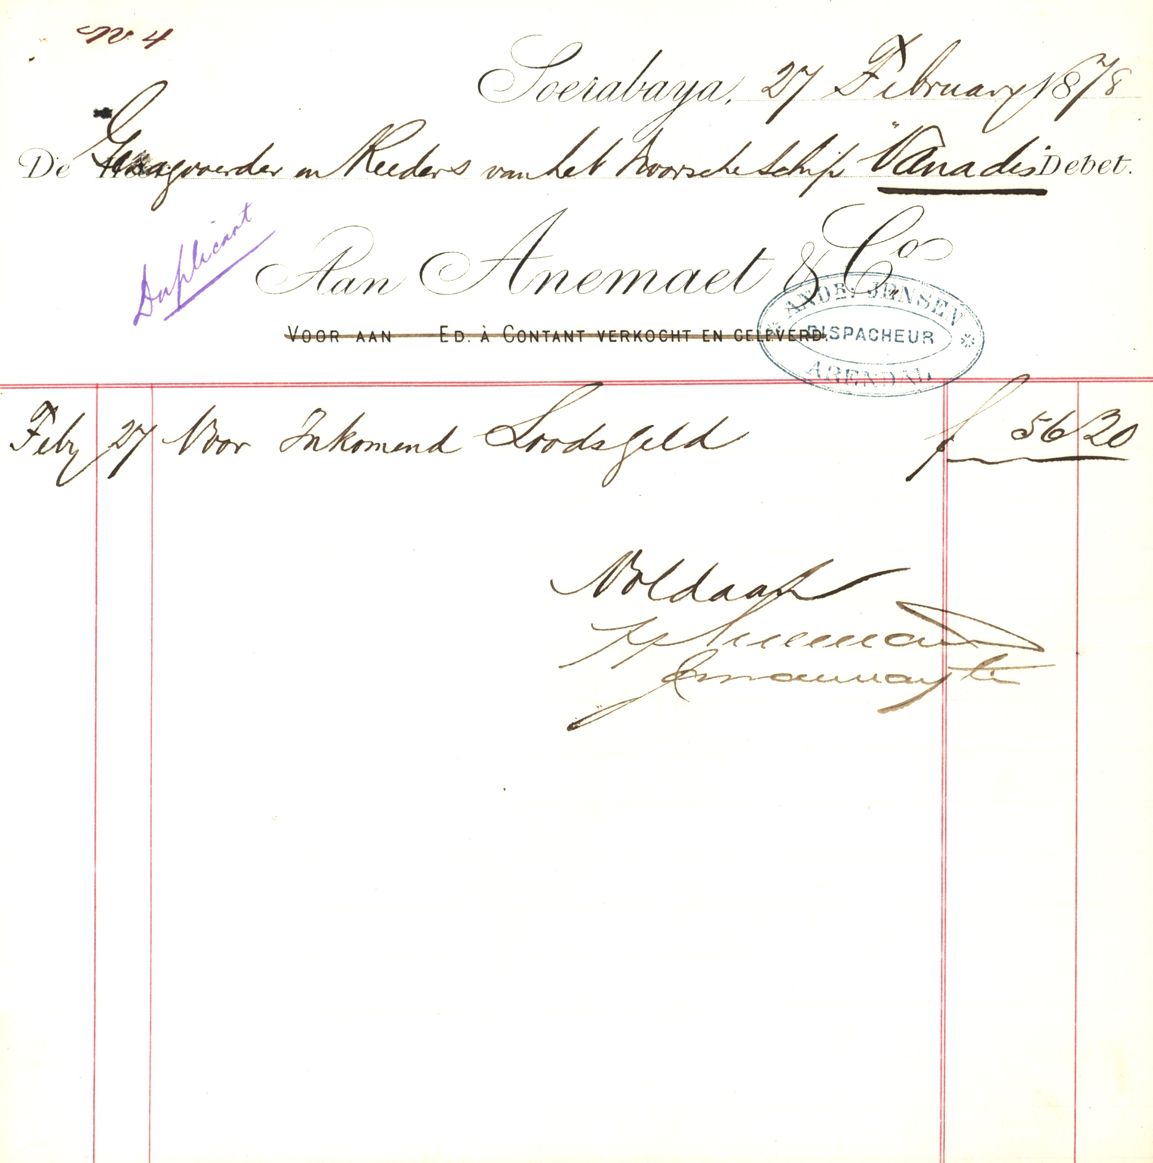 No 4
Soerabaya, 27 February 1878
De Gezagvoerder en Reeders van het Noorsche Schip "Vanadis" Debet.
Duplicaat
Aan Anemaet & Co
VOOR AAN ED. À CONTANT VERKOCHT EN GELEVERD.
ANDR. JENSEN
DISPACHEUR
ARENDAL
Feby 27 Voor Inkomend Loodsgeld f 56 20
Voldaan